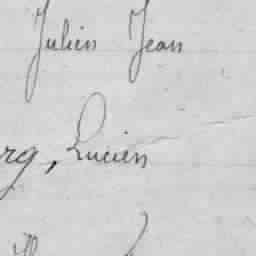 Julien Jean
rg, Lucien